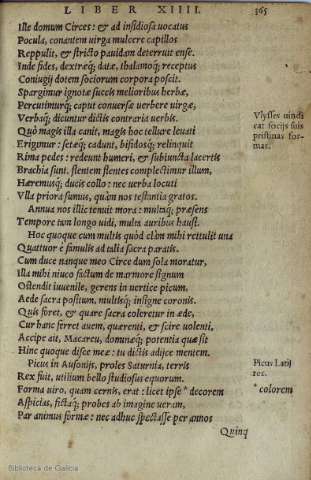 LIBER XIIII. 365
Ille domum Circes: & ad insidiosa uocatus
Pocula, conantem uirga mulcere capillos
Reppulit, & stricto pauidam deterruit ense.
Inde fides, dextræq; datæ, thalamoq; receptus
Coniugij dotem sociorum corpora poscit.
Spargimur ignotæ succis melioribus herbæ,
Percutimurq; caput conuersæ uerbere uirgæ,
Verbaq; dicuntur dictis contraria uerbis.
Quò magis illa canit, magis hoc tellure leuati
Erigimur: setæq; cadunt, bifidosq; relinquit
Rima pedes: redeunt humeri, & subiuncta lacertis
Brachia sunt. flentem flentes complectimur illum,
Hæremusq; ducis collo: nec uerba locuti
Vlla priora sumus, quàm nos testantia gratos.
Annua nos illic tenuit mora: multaq; præsens
Tempore tam longo uidi, multa auribus hausi.
Hoc quoque cum multis quod clàm mihi rettulit una
Quattuor è famulis ad talia sacra paratis.
Cum duce nanque meo Circe dum sola moratur,
Illa mihi niueo factum de marmore signum
Ostendit iuuenile, gerens in uertice picum,
Aede sacra positum, multisq; insigne coronis.
Quis foret, & quare sacra coleretur in æde,
Cur hanc ferret auem, quærenti, & scire uolenti,
Accipe ait, Macareu, dominæq; potentia quæ sit
Hinc quoque disce meæ: tu dictis adijce mentem.
Picus in Ausonijs, proles Saturnia, terris
Rex fuit, utilium bello studiosus equorum.
Forma uiro, quam cernis, erat: licet ipse * decorem
Aspicias, fictaq; probes ab imagine ueram,
Par animus formæ: nec adhuc spectasse per annos
Quinq
Vlysses uindi
cat socijs suis
pristinas for-
mas.
Picus Latij
rex.
* colorem
Biblioteca de Galicia